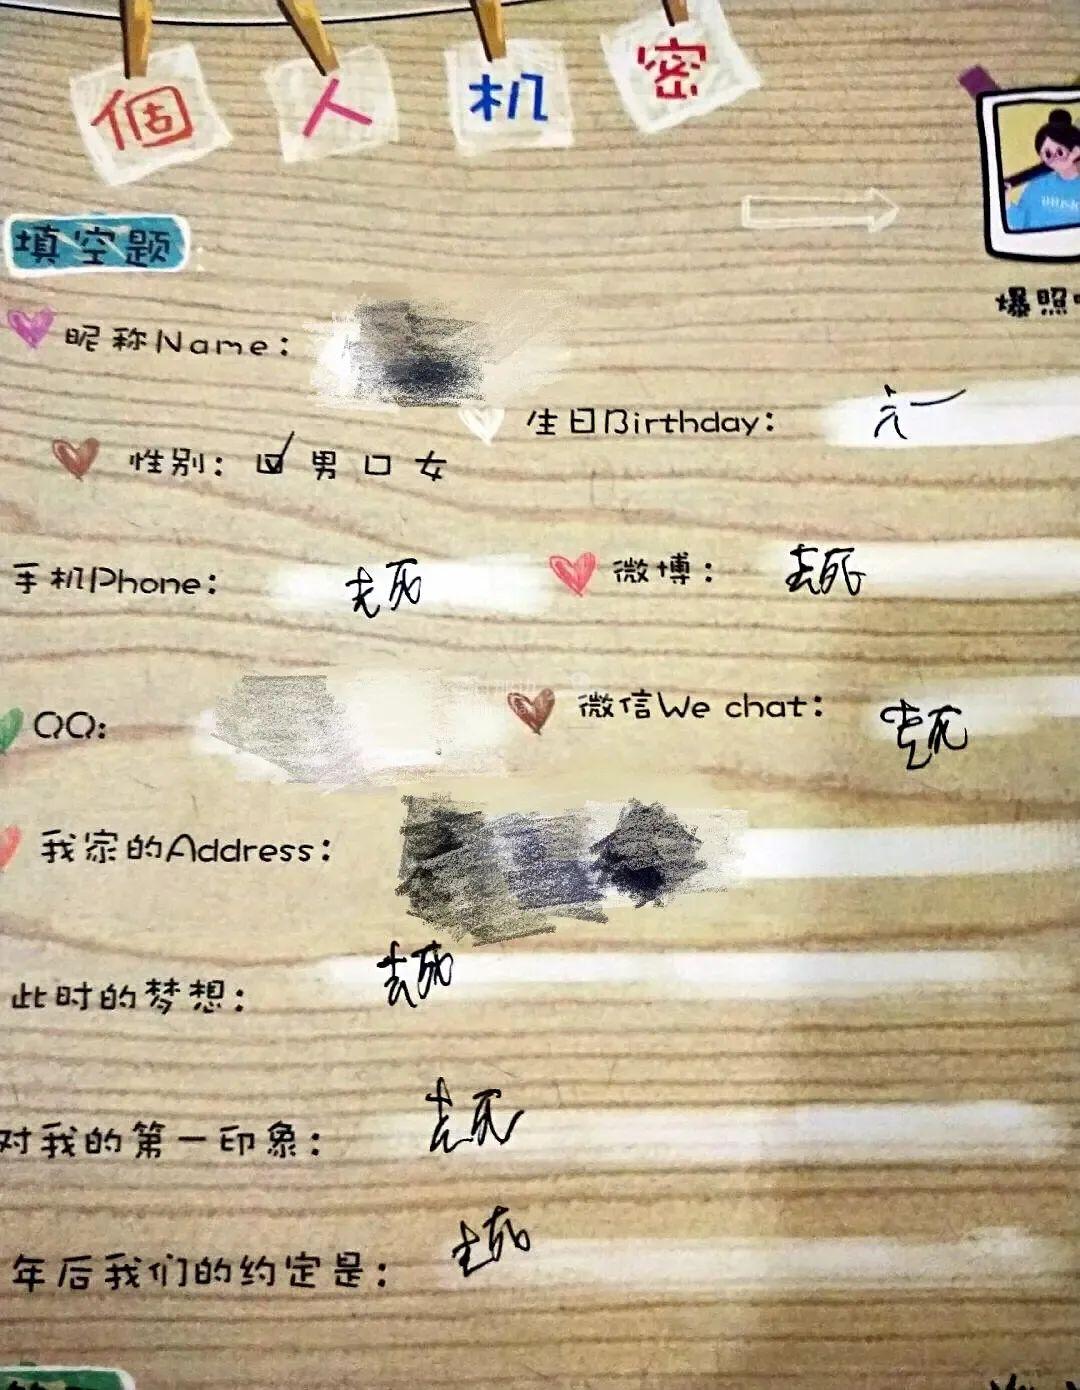 個人机密
填空题:
爆照
昵称Name:
生日Birthday: 六一
性别: 男 女
手机Phone: 去死
微博: 去死
QQ:
微信We chat: 去死
我家的Address:
此时的梦想: 去死
对我的第一印象: 去死
年后我们的约定是: 去死